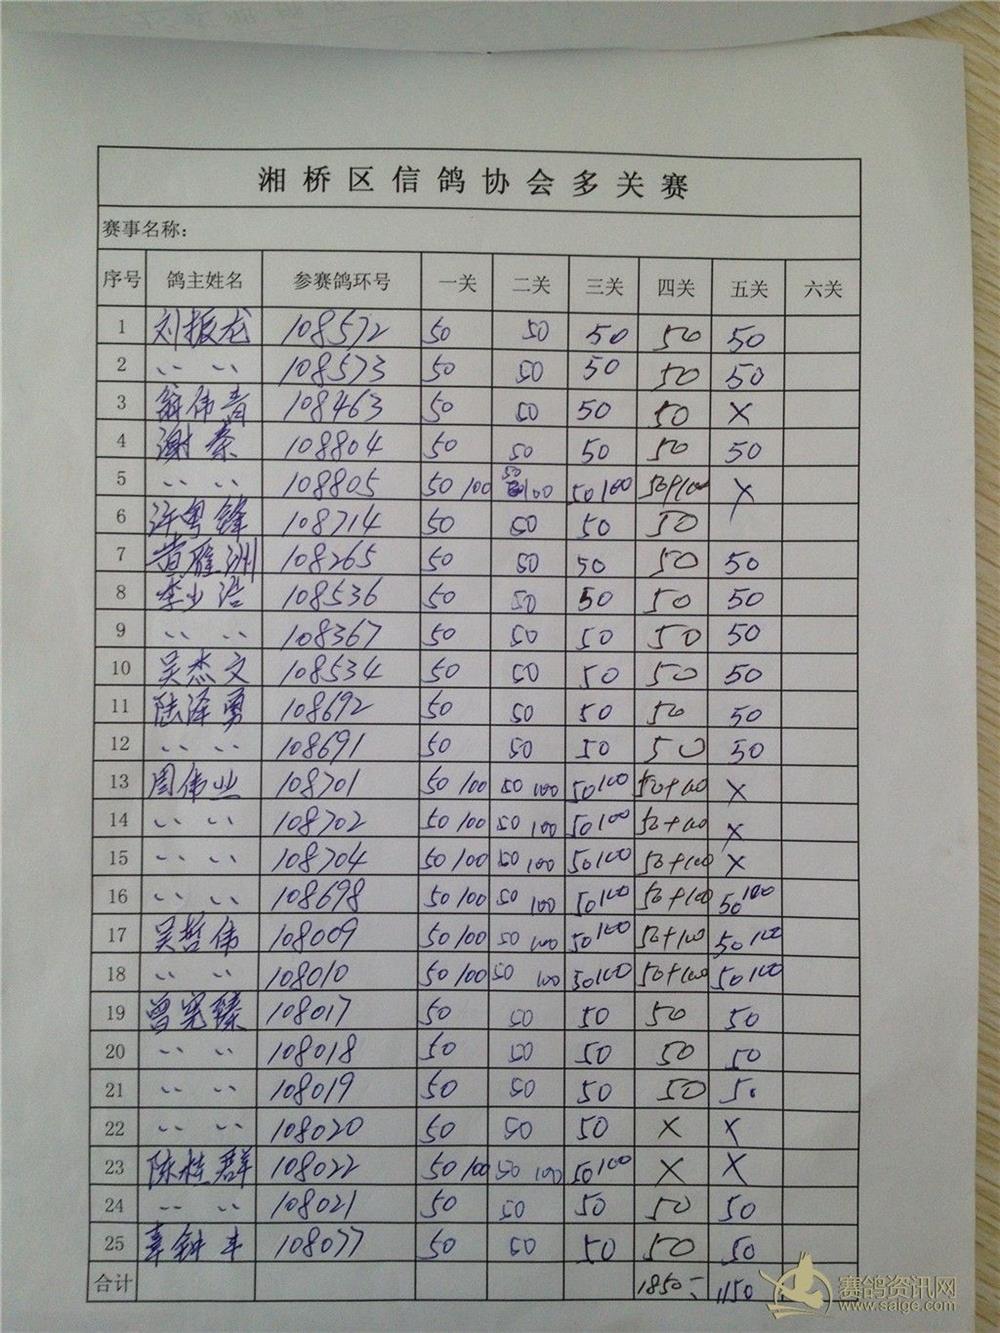 湘桥区信鸽协会多关赛
赛事名称:
序号 鸽主姓名 参赛鸽环号 一关 二关 三关 四关 五关 六关
1 刘振龙 108572 50 50 50 50 50
2 〃 〃 108573 50 50 50 50 50
3 翁伟青 108463 50 50 50 50 X
4 谢泰 108804 50 50 50 50 50
5 〃 〃 108805 50 100 50 100 50 100 50+100 X
6 许粤锋 108714 50 50 50 50
7 黄雁洲 108265 50 50 50 50 50
8 李少浩 108536 50 50 50 50 50
9 〃 〃 108367 50 50 50 50 50
10 吴杰文 108534 50 50 50 50 50
11 陆泽勇 108692 50 50 50 50 50
12 〃 〃 108691 50 50 50 50 50
13 周伟业 108701 50 100 50 100 50 100 50+100 X
14 〃 〃 108702 50 100 50 100 50 100 50+100 X
15 〃 〃 108704 50 100 50 100 50 100 50+100 X
16 〃 〃 108698 50 100 50 100 50 100 50+100 50 100
17 吴哲伟 108009 50 100 50 100 50 100 50+100 50 100
18 〃 〃 108010 50 100 50 100 50 100 50+100 50 100
19 曾宪臻 108017 50 50 50 50 50
20 〃 〃 108018 50 50 50 50 50
21 〃 〃 108019 50 50 50 50 50
22 〃 〃 108020 50 50 50 X X
23 陈桂群 108022 50 100 50 100 50 100 X X
24 〃 〃 108021 50 50 50 50 50
25 辜钟丰 108077 50 50 50 50 50
合计 1850 1150
赛鸽资讯网
www.saige.com